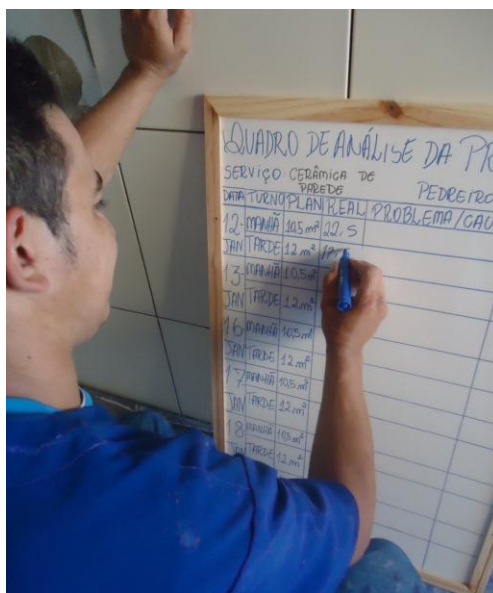 QUADRO DE ANÁLISE DA PR
SERVIÇO CERÂMICA DE
PAREDE PEDREIRO
DATA TURNO PLAN REAL PROBLEMA/CAU
12- MANHÃ 10,5 m² 22,5
JAN TARDE 12 m²
13 MANHÃ 10,5 m²
JAN TARDE 12 m²
16 MANHÃ 10,5 m²
JAN TARDE 12 m²
17 MANHÃ 10,5 m²
JAN TARDE 12 m²
18 MANHÃ 10,5 m²
TARDE 12 m²